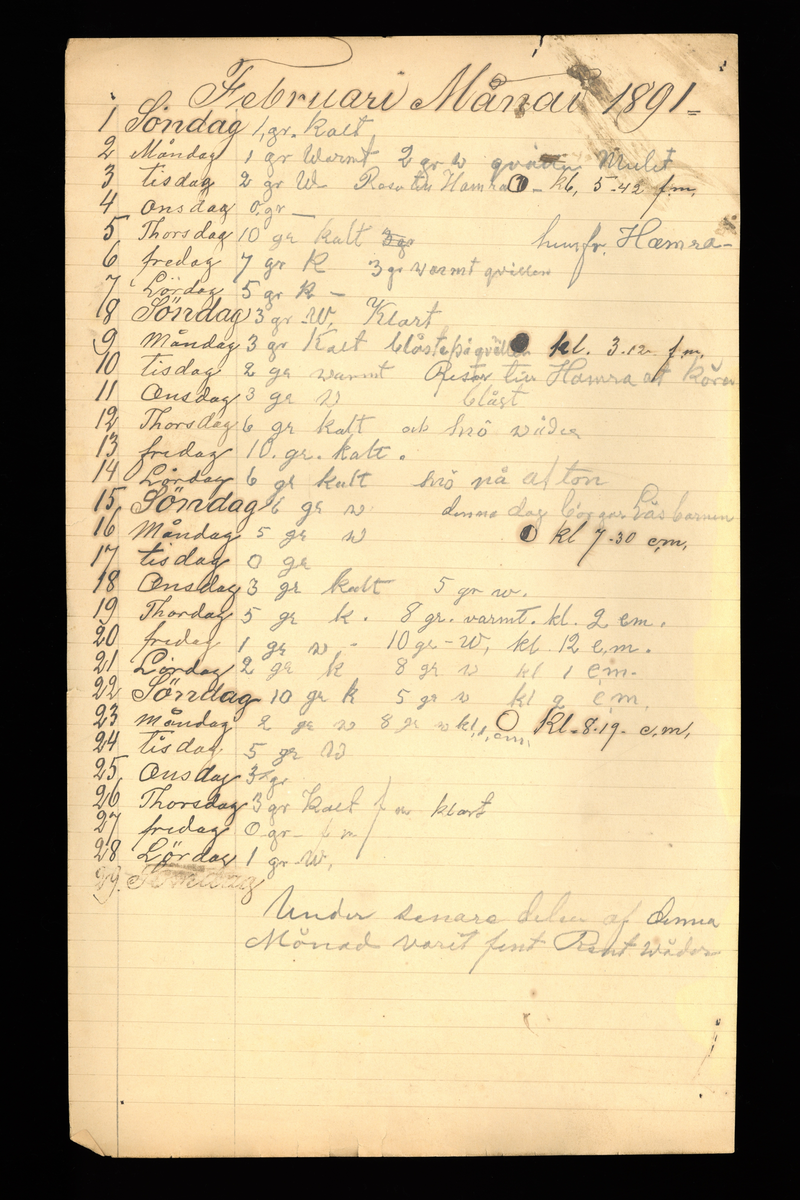 Februari Månad 1891-
1 Söndag 1, gr. kalt
2 Måndag 1 gr Warmt 2 gr w qvällen Mulet
3 tisdag 2 gr W Hamra - kl, 5-42 f.m.
4 Onsdag 0 gr -
5 Thorsdag 10 gr kalt Hamra-
6 fredag 7 gr K 3 gr warmt qvillen
7 Lördag 5 gr K -
8 Söndag 3 gr. W, Klart
9 Måndag 3 gr Kalt blåste på qvällen kl. 3.12 f.m.
10 tisdag 2 gr warmt Reser till Hamra at köra
11 Onsdag 3 gr w blåst
12 Thorsdag 6 gr kalt och snö wäder
13 fredag 10. gr. kalt.
14 Lördag 6 gr kalt snö på afton
15 Söndag 6 gr w denna dag börgar Läsbarnen
16 Måndag 5 gr w kl 7-30 e.m,
17 tisdag 0 gr
18 Onsdag 3 gr kalt 5 gr w.
19 Thordag 5 gr k. 8 gr. varmt. kl. 2 em.
20 fredag 1 gr w - 10 gr-W, kl. 12 e.m.
21 Lördag 2 gr k 8 gr w kl 1 e.m.
22 Söndag 10 gr k 5 gr w kl 2 e.m,
23 Måndag 2 gr w 8 gr w kl, 1, em, Kl.-8.19- e.m,
24 tisdag 5 gr W
25 Onsdag 3 gr
26 Thorsdag 3 gr Kalt f m klart
27 fredag 0 gr- f m
28 Lördag 1 gr-W,
29. Söndag
Under senare delen af denna
Månad varit fint Rent Wäder